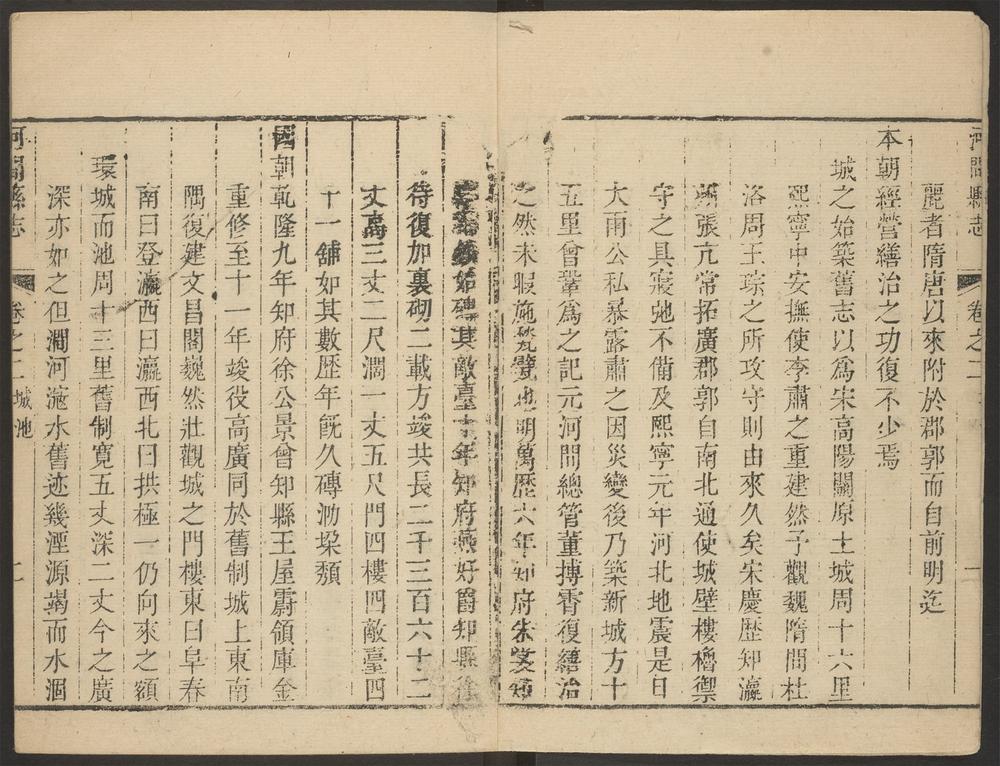 河間縣志 卷之二 一
麗者隋唐以來附於郡郭而自前明迄
本朝經營繕治之功復不少焉
城之始築舊志以爲宋高陽關原土城周十六里
熙寧中安撫使李肅之重建然予觀魏隋間杜
洛周王琮之所攻守則由來久矣宋慶歷知瀛
州張亢常拓廣郡郭自南北通使城壁樓櫓禦
守之具寢弛不備及熙寧元年河北地震是日
大雨公私暴露肅之因災變後乃築新城方十
五里曾鞏爲之記元河間總管董摶霄復繕治
之然未暇施甃甓也明萬歷六年知府朱
始磚其敵臺十年知府燕好爵知縣
待復加裏砌二載方竣共長二千三百六十二
丈高三丈二尺濶一丈五尺門四樓四敵臺四
十一舖如其數歷年旣久磚泐垜頽
國朝乾隆九年知府徐公景曾知縣王屋爵領庫金
重修至十一年竣役高廣同於舊制城上東南
隅復建文昌閣巍然壯觀城之門樓東曰阜春
南曰登瀛西曰瀛西北曰拱極一仍向來之額
環城而池周十三里舊制寬五丈深二丈今之廣
深亦如之但澗河滹水舊迹幾湮源竭而水涸
河間縣志 卷之二 城池 二